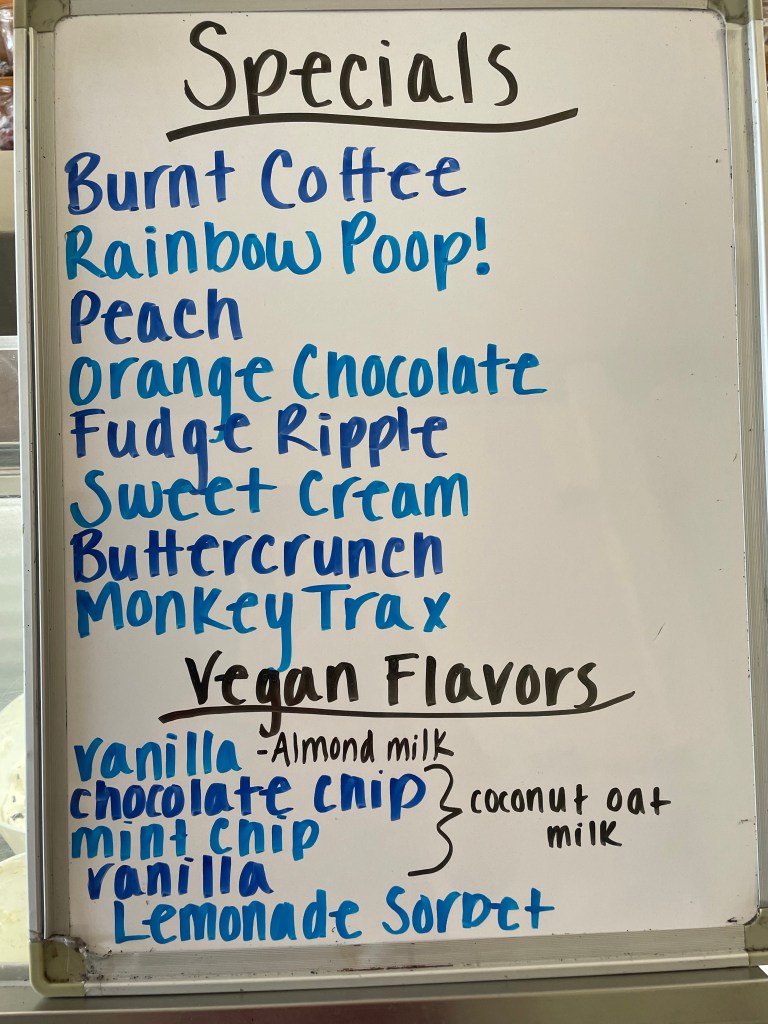 Specials
Burnt Coffee
Rainbow Poop!
Peach
Orange Chocolate
Fudge Ripple
Sweet Cream
Buttercrunch
Monkey Trax
Vegan Flavors
vanilla - Almond milk
chocolate chip
mint chip
vanilla
coconut oat
milk
Lemonade Sorbet